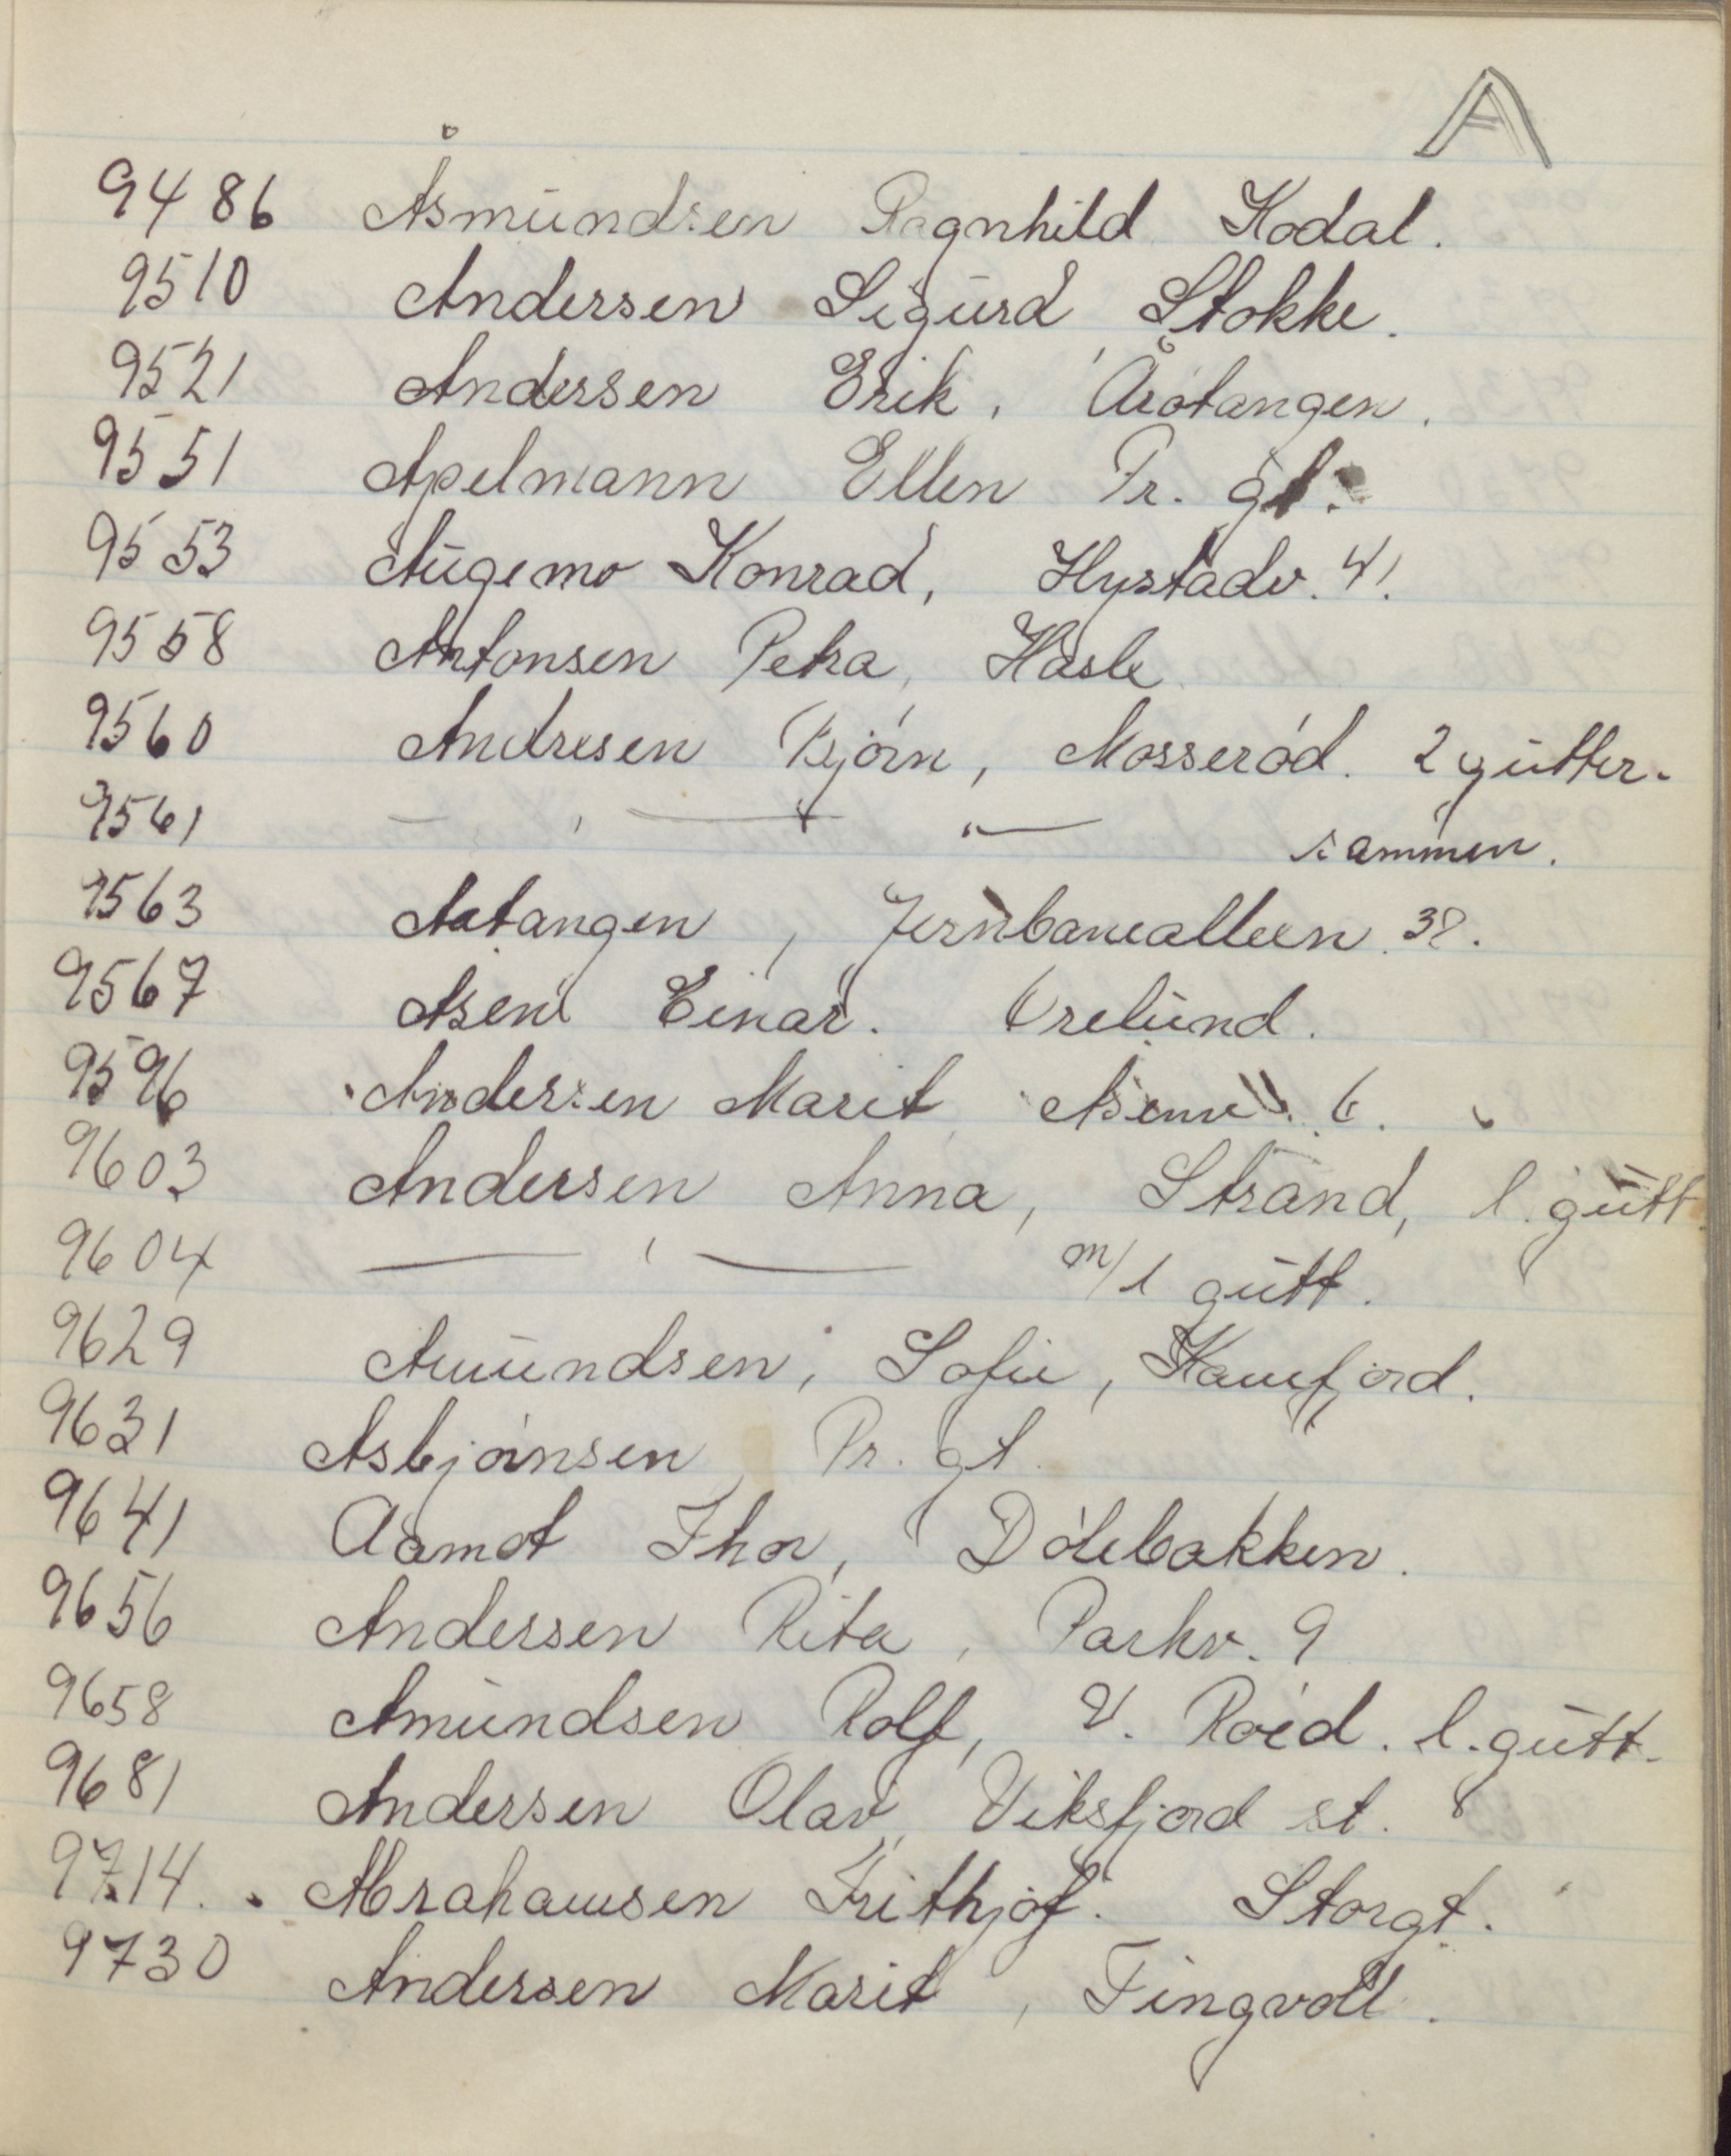 A
9486 Åsmundsen Ragnhild Kodal.
9510 Andersen Sigurd Stokke.
9521 Andersen Erik, Årøtangen.
9551 Apelmann Ellen Pr. gt.
9553 Augemo Konrad, Hystadv. 41.
9558 Antonsen Petra, Hasle
9560 Andresen Bjørn, Mosserød. 2 gutter
9561 — " — " — sammen.
9563 Aatangen, Jernbanealleen 38.
9567 Åsen Einar. Orelund.
9596 Andersen Marit, 6.
9603 Andersen Anna, Strand, l. gutt
9604 — " — m/l gutt.
9629 Amundsen, Sofie, Kamfjord.
9631 Asbjørnsen Pr. gt.
9641 Aamot Thor, Dølebakken.
9656 Andersen Rita, Parkv. 9
9658 Amundsen Rolf, V. Røed. l. gutt.
9681 Andersen Olav, Viksfjord st.
9714. Abrahamsen Frithjof. Storgt.
9730 Andersen Marit, Tingvoll.